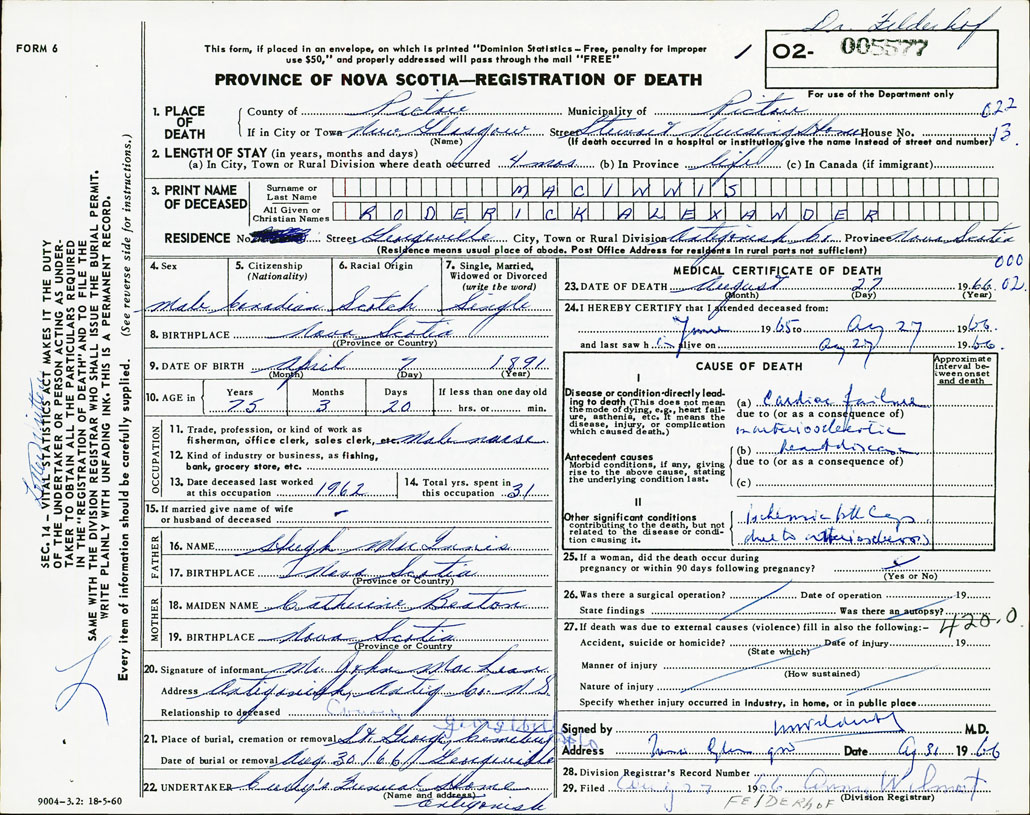 Dr. Felderhof
FORM 6
This form, if placed in an envelope, on which is printed "Dominion Statistics — Free, penalty for improper
use $50," and properly addressed will pass through the mail "FREE"
02- 005577
PROVINCE OF NOVA SCOTIA—REGISTRATION OF DEATH
For use of the Department only
1. PLACE OF DEATH
County of Pictou Municipality of Pictou 022
If in City or Town New Glasgow Street Stewart Nursing Home House No. 13
(Name) (If death occurred in a hospital or institution, give the name instead of street and number)
2. LENGTH OF STAY (in years, months and days)
(a) In City, Town or Rural Division where death occurred 4 mos (b) In Province life (c) In Canada (if immigrant)
3. PRINT NAME OF DECEASED
Surname or Last Name MACINNIS
All Given or Christian Names RODERICK ALEXANDER
RESIDENCE No. Street Georgeville City, Town or Rural Division Antigonish Co. Province Nova Scotia
(Residence means usual place of abode. Post Office Address for residents in rural parts not sufficient)
000
02
4. Sex
Male
5. Citizenship
(Nationality)
Canadian
6. Racial Origin
Scotch
7. Single, Married,
Widowed or Divorced
(write the word)
Single
8. BIRTHPLACE Nova Scotia
(Province or Country)
9. DATE OF BIRTH April 7 1891
(Month) (Day) (Year)
10. AGE in
Years 75
Months 3
Days 20
If less than one day old
hrs. or min.
OCCUPATION
11. Trade, profession, or kind of work as
fisherman, office clerk, sales clerk, etc. Male nurse
12. Kind of industry or business, as fishing,
bank, grocery store, etc.
13. Date deceased last worked
at this occupation 1962
14. Total yrs. spent in
this occupation 31
15. If married give name of wife
or husband of deceased -
FATHER
16. NAME Hugh MacInnis
17. BIRTHPLACE Nova Scotia
(Province or Country)
MOTHER
18. MAIDEN NAME Catherine Beaton
19. BIRTHPLACE Nova Scotia
(Province or Country)
20. Signature of informant Mr. John MacLean
Address Antigonish, Antig. Co. N.S.
Relationship to deceased
21. Place of burial, cremation or removal St. George's Cemetery
Date of burial or removal Aug. 30, 66 Georgeville
22. UNDERTAKER Curry's Funeral Home
(Name and address)
Antigonish
9004-3.2: 18-5-60
MEDICAL CERTIFICATE OF DEATH
23. DATE OF DEATH August 27 1966
(Month) (Day) (Year)
24. I HEREBY CERTIFY that I attended deceased from:
June 1965 to Aug 27 1966
and last saw h im alive on Aug 27 1966.
CAUSE OF DEATH
Approximate interval between onset and death
I
Disease or condition directly leading to death (This does not mean the mode of dying, e.g., heart failure, asthenia, etc. It means the disease, injury, or complication which caused death.)
(a) Cardiac failure
due to (or as a consequence of)
arteriosclerotic
Antecedent causes
Morbid conditions, if any, giving rise to the above cause, stating the underlying condition last.
(b) heart disease
due to (or as a consequence of)
(c)
II
Other significant conditions
contributing to the death, but not related to the disease or condition causing it.
Ischemia both legs
due to arteriosclerosis
25. If a woman, did the death occur during
pregnancy or within 90 days following pregnancy?
(Yes or No)
26. Was there a surgical operation? Date of operation 19
State findings Was there an autopsy?
420.0
27. If death was due to external causes (violence) fill in also the following:-
Accident, suicide or homicide? Date of injury 19
(State which)
Manner of injury
(How sustained)
Nature of injury
Specify whether injury occurred in industry, in home, or in public place
Signed by M.D.
Address New Glasgow Date Ag 31 1966
28. Division Registrar's Record Number
29. Filed Aug 27 1966 Wilmot
(Division Registrar)
FELDERHOF
SEC. 14 — VITAL STATISTICS ACT MAKES IT THE DUTY
OF THE UNDERTAKER OR PERSON ACTING AS UNDERTAKER TO OBTAIN ALL THE PARTICULARS REQUIRED
IN THE "REGISTRATION OF DEATH" AND TO FILE THE
SAME WITH THE DIVISION REGISTRAR WHO SHALL ISSUE THE BURIAL PERMIT.
WRITE PLAINLY WITH UNFADING INK. THIS IS A PERMANENT RECORD.
Every item of information should be carefully supplied. (See reverse side for instructions.)